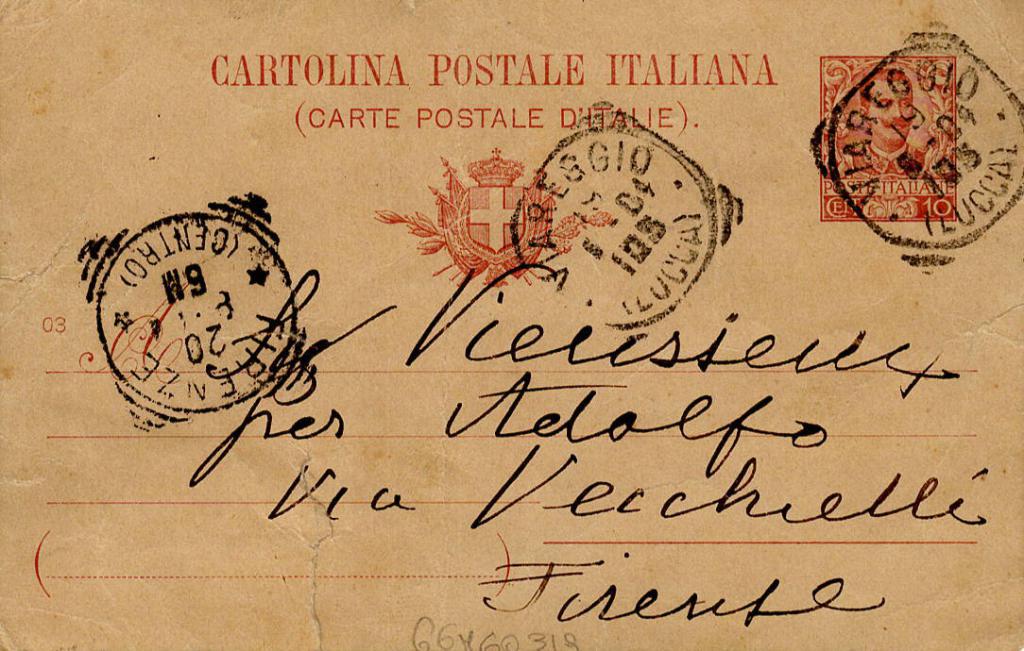 CARTOLINA POSTALE ITALIANA
(CARTE POSTALE D'ITALIE).
VIAREGGIO
(LUCCA)
VIAREGGIO
(LUCCA)
POSTE ITALIANE
CENT. 10
FIRENZE
(CENTRO)
20
6M
03
Vieusseux
per Adolfo
Via Vecchielli
Firenze